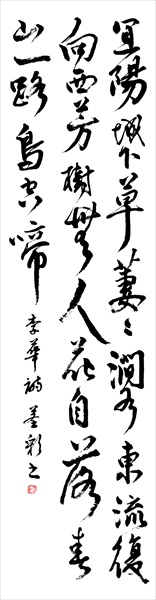 宜陽城下草萋〻澗水東流復
向西芳樹無人花自落春
山一路鳥空啼
李華詩 墨彩之